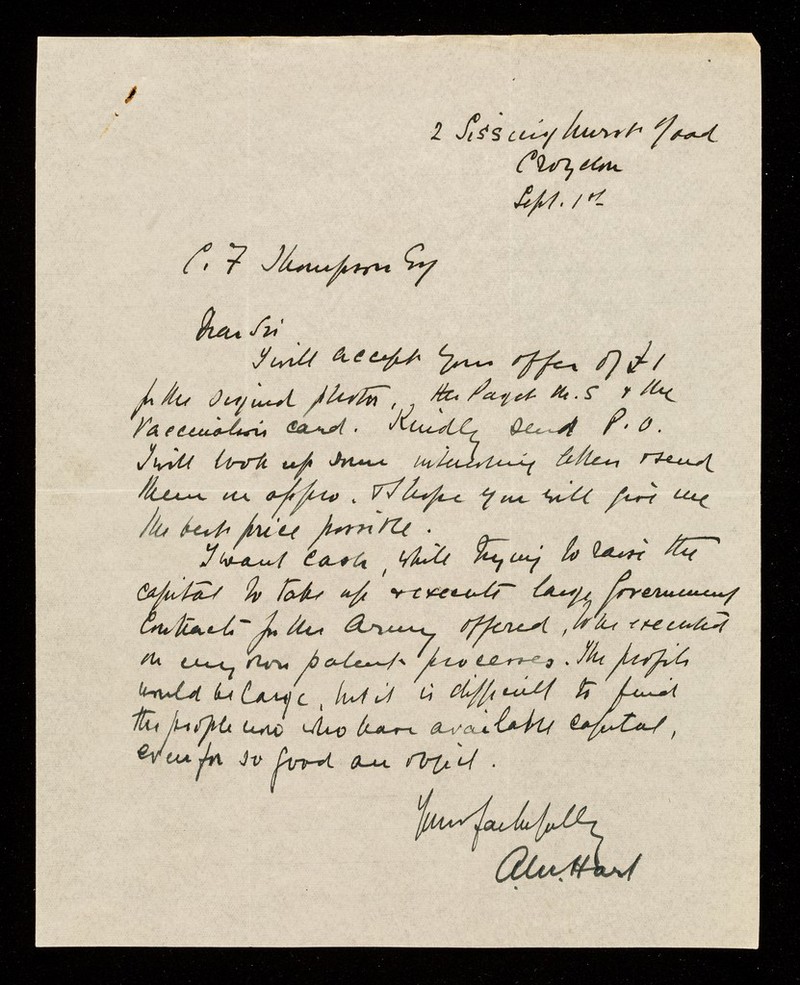 2 Sissinghurst Road
Croydon
Sept. 1st
C. F Thompson Esq
Dear Sir
I will accept your offer of £1
for the signed photos, the Paget M.S & the
Vaccination card. Kindly send P.O.
I will look up some interesting letters & send
them on appro. & I hope you will give me
the best price possible.
I want cash, while trying to raise the
capital to take up & execute large Government
Contracts for the Army offered, to be executed
on my own patent processes. The profits
would be large, but it is difficult to find
the people now who have available capital,
even for so good an object.
Yours faithfully
Hart